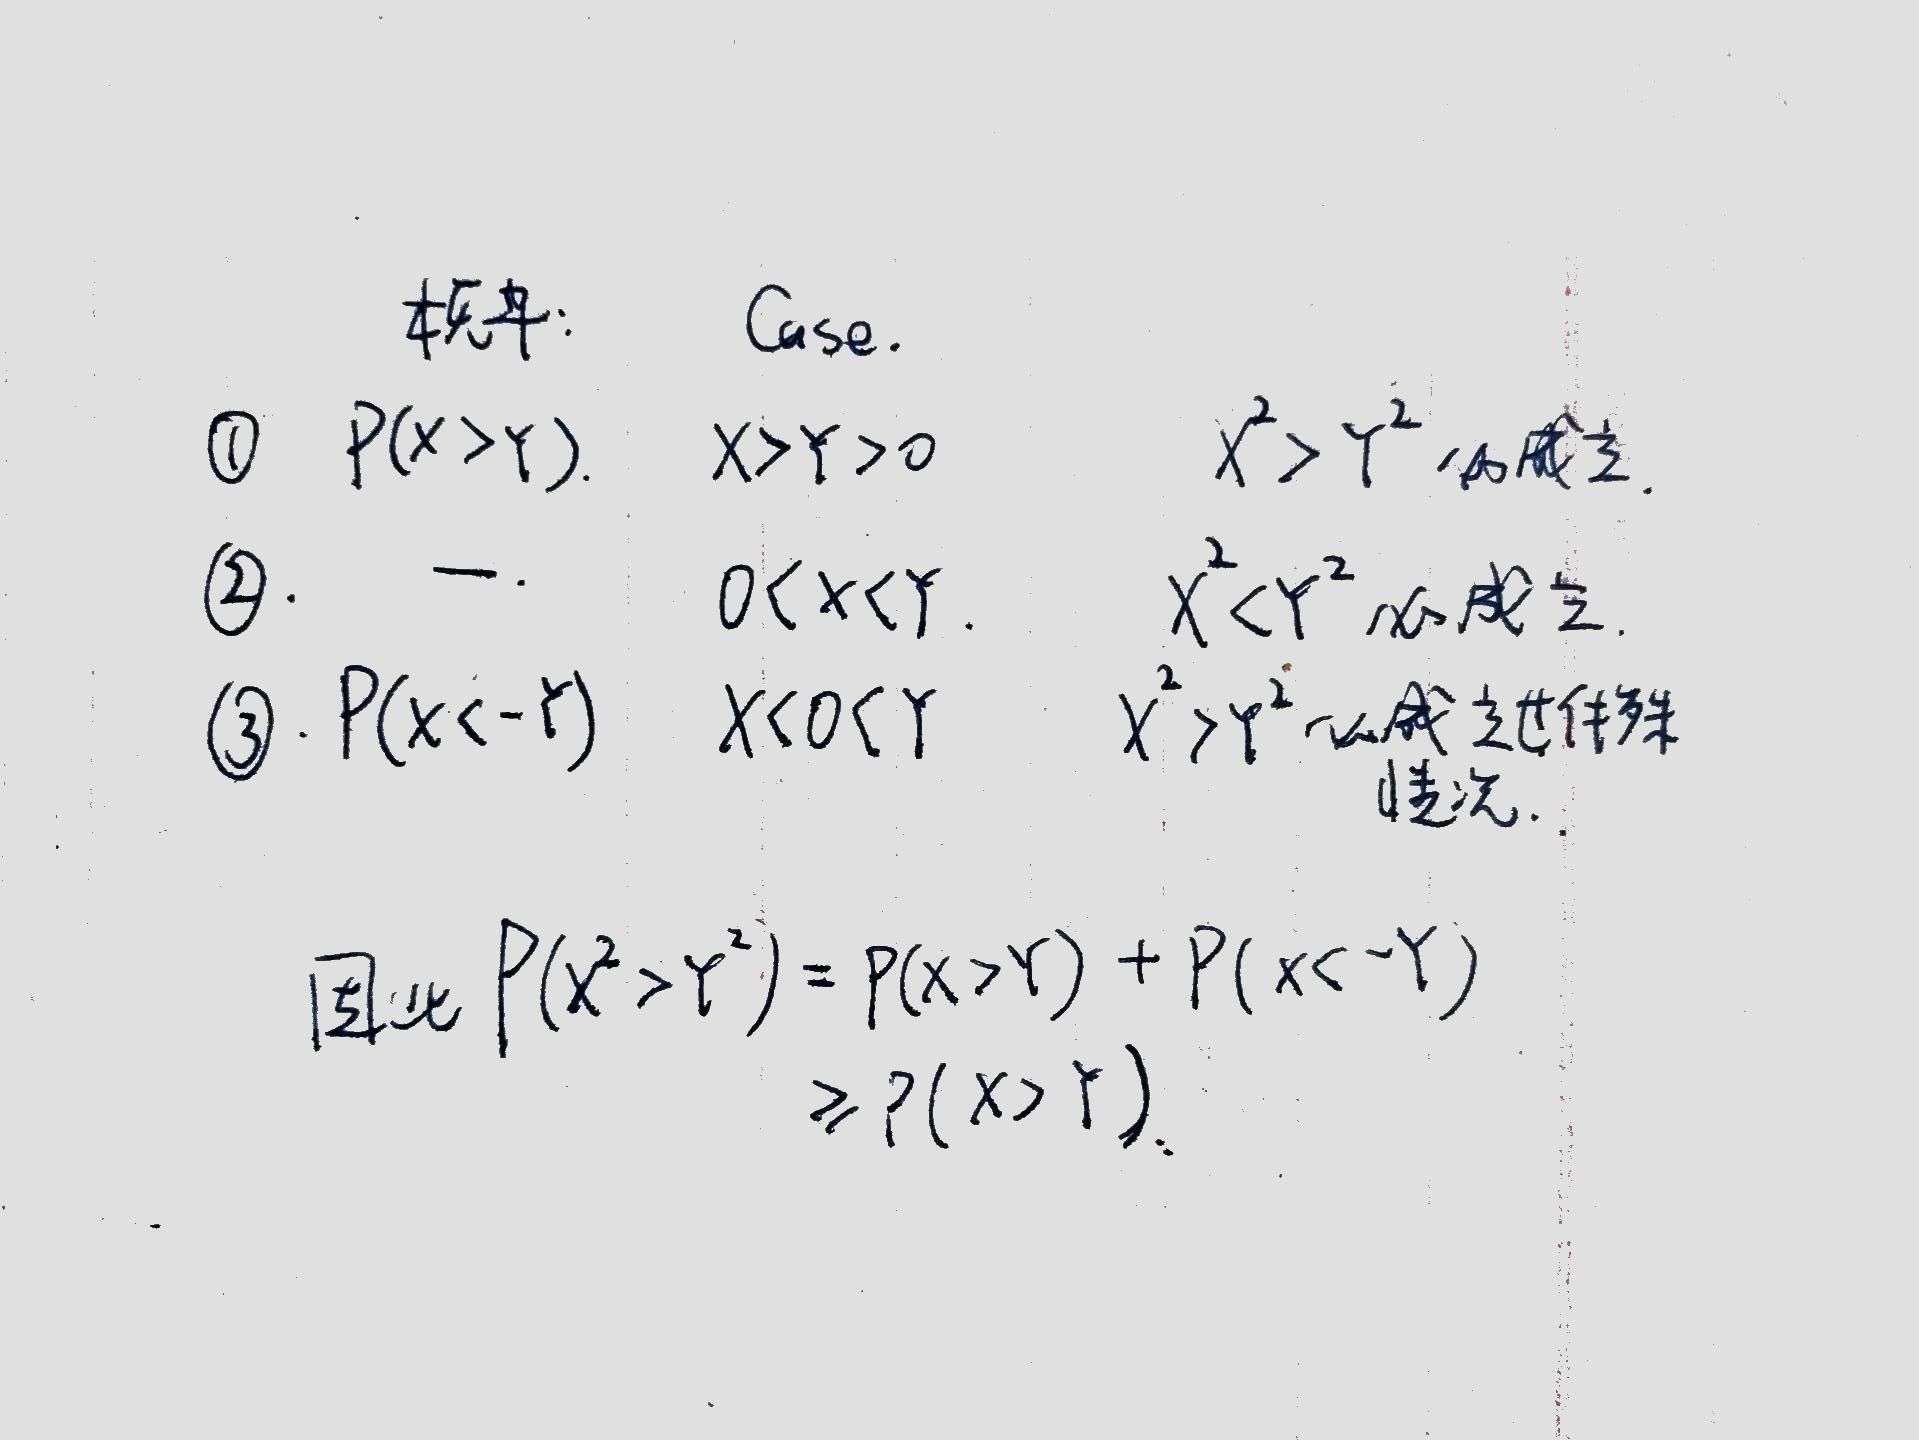 概率: Case.
① P(X>Y). X>Y>0 X²>Y² 必成立.
②. 一. 0<X<Y. X²<Y² 必成立.
③. P(X<-Y) X<0<Y X²>Y² 必成立世件殊
情况.
因此 P(X²>Y²) = P(X>Y) + P(X<-Y)
≥ P(X>Y).